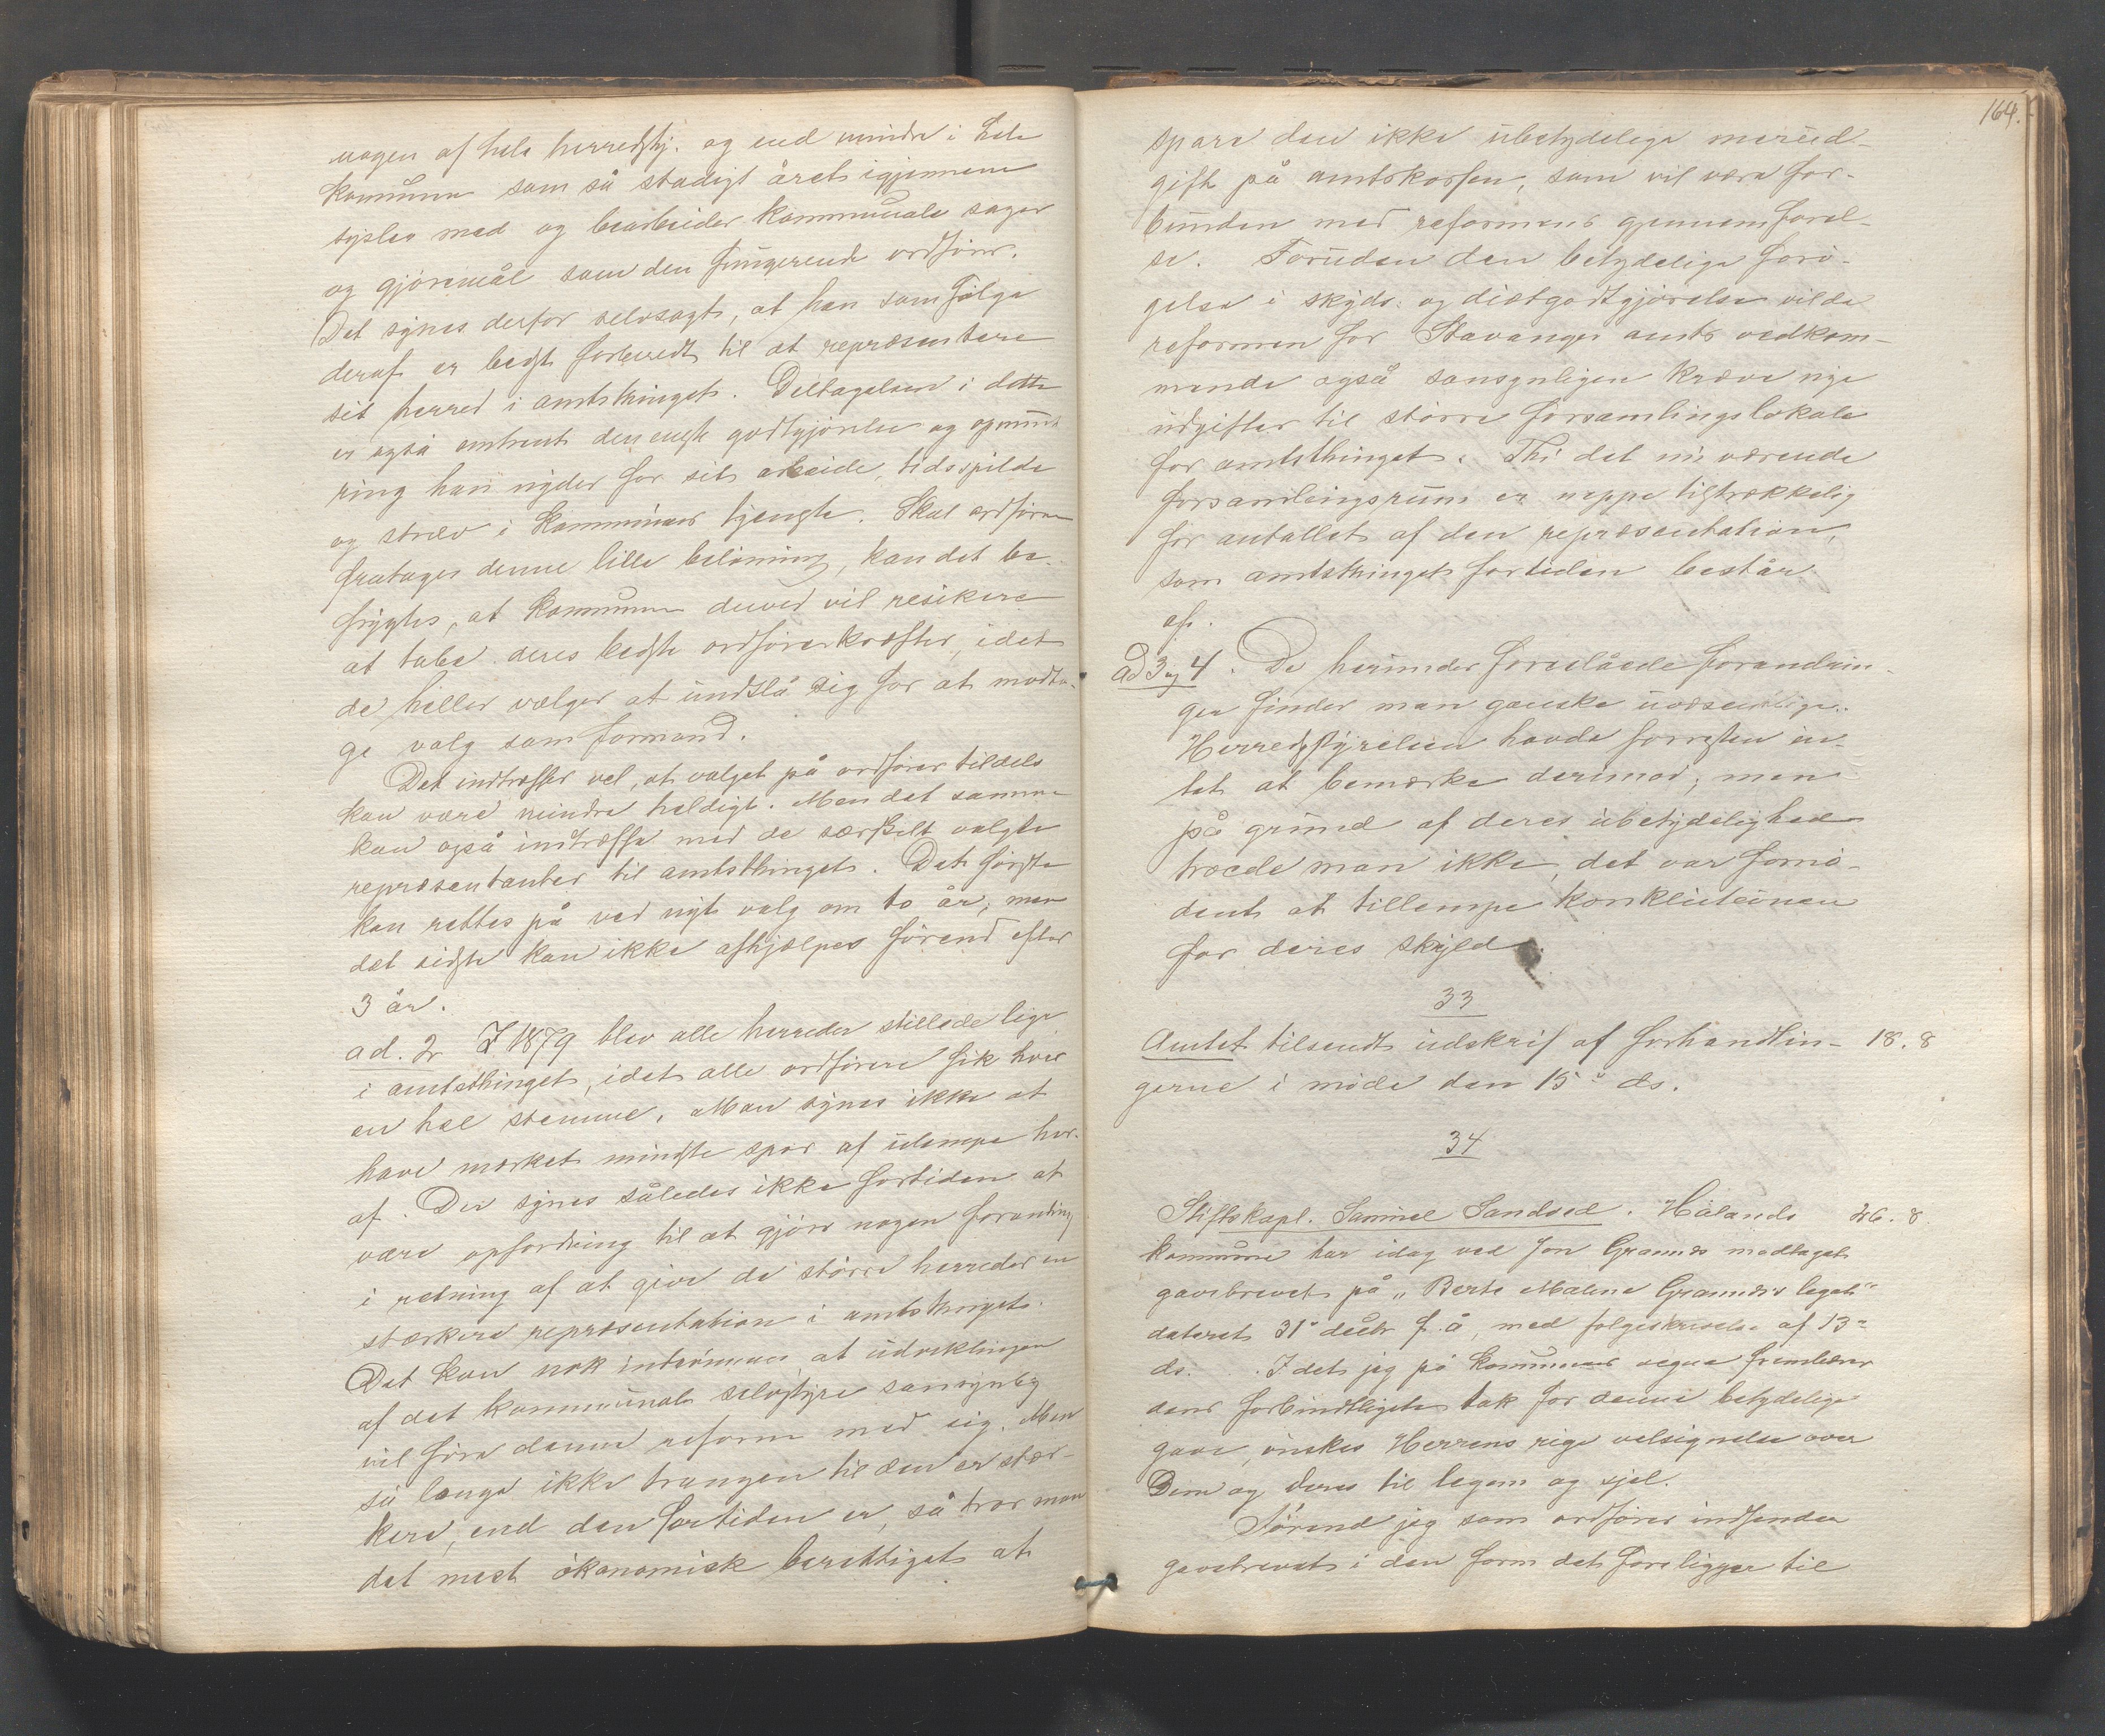 nogen af hele herredsty. og end mindre i hele
kommunen som så stadigt året igjennem
sysler med og bearbeider kommunale sager
og gjøremål som den fungerende ordfører.
Det synes derfor selvsagt, at han som følge
deraf er bedst forberedt til at repræsentere
sit herred i amtsthinget. Deltagelsen i dette
er også omtrent den eneste godtgjørelse og opmunt
ring han nyder for sit arbeide, tidsspilde
og stræv i kommunens tjeneste. Skal ordføren
fratages denne lille belønning, kan det be-
frygtes, at kommunen derved vil resikere
at tabe deres bedste ordførerkræfter, idet
de heller vælger at undslå sig for at modta-
ge valg som formand.
Det indtræffer vel, at valget på ordfører tildels
kan være mindre heldigt. Men det samme
kan også indtræffe med de særskilt valgte
repræsentanter til amtsthinget. Det første
kan rettes på ved nyt valg om to år, men
det sidste kan ikke afhjælpes førend efter
3 år.
ad. 2 I 1879 blev alle herreder stillede lige
i amtsthinget, idet alle ordførere fik hver
en hel stemme. Man synes ikke at
have mærket mindste spor af ulempe her-
af. Der synes således ikke fortiden at
være opfordring til at gjøre nogen forandring
i retning af at give de større herreder en
stærkere repræsentation i amtsthinget.
Det kan nok indrømmes at udviklingen
af det kommunale selvstyre sansynlig
vil føre denne reform med sig. Men
så længe ikke trangen til den er stær-
kere, end den fortiden er, så tror man
det mest økonomisk berettiget at
164.
spare den ikke ubetydelige merud-
gift på amtskassen, som vil være for-
bunden med reformens gjennemførel-
se. Foruden den betydelige forø-
gelse i skyds- og diætgodtgjørelse vilde
reformen for Stavanger amts vedkom-
mende også sansynligen kræve nye
udgifter til større forsamlingslokale
for amtsthinget. Thi det nu værende
forsamlingsrum er neppe tilstrækkelig
for antallet af den repræsentation,
som amtsthinget fortiden består
af.
Ad 3 og 4. De herunder foreslåede forandrin-
ger finder man ganske uvæsentlige.
Herredsstyrelsen havde forresten in-
tet at bemærke derimod; men
på grund af deres ubetydelighed
troede man ikke, det var fornø-
dent at tillempe konklutionen
for deres skyld.
33
Amtet tilsendt udskrif af forhandlin- 18. 8
gerne i møde den 15de ds.
34
Stiftskapl. Samuel Sandved. Hålands 26. 8
kommune har idag ved Jon Grannes modtaget
gavebrevet på "Berte Malene Grannes's legat"
dateret 31te decbr f. å, med følgeskrivelse af 13de
ds. Idet jeg på kommunens vegne frembærer
dens forbindtligste tak for denne betydelige
gave, ønskes Herrens rige velsignelse over
Dem og Deres til legem og sjel.
Førend jeg som ordfører indsender
gavebrevet i den form det foreligger til